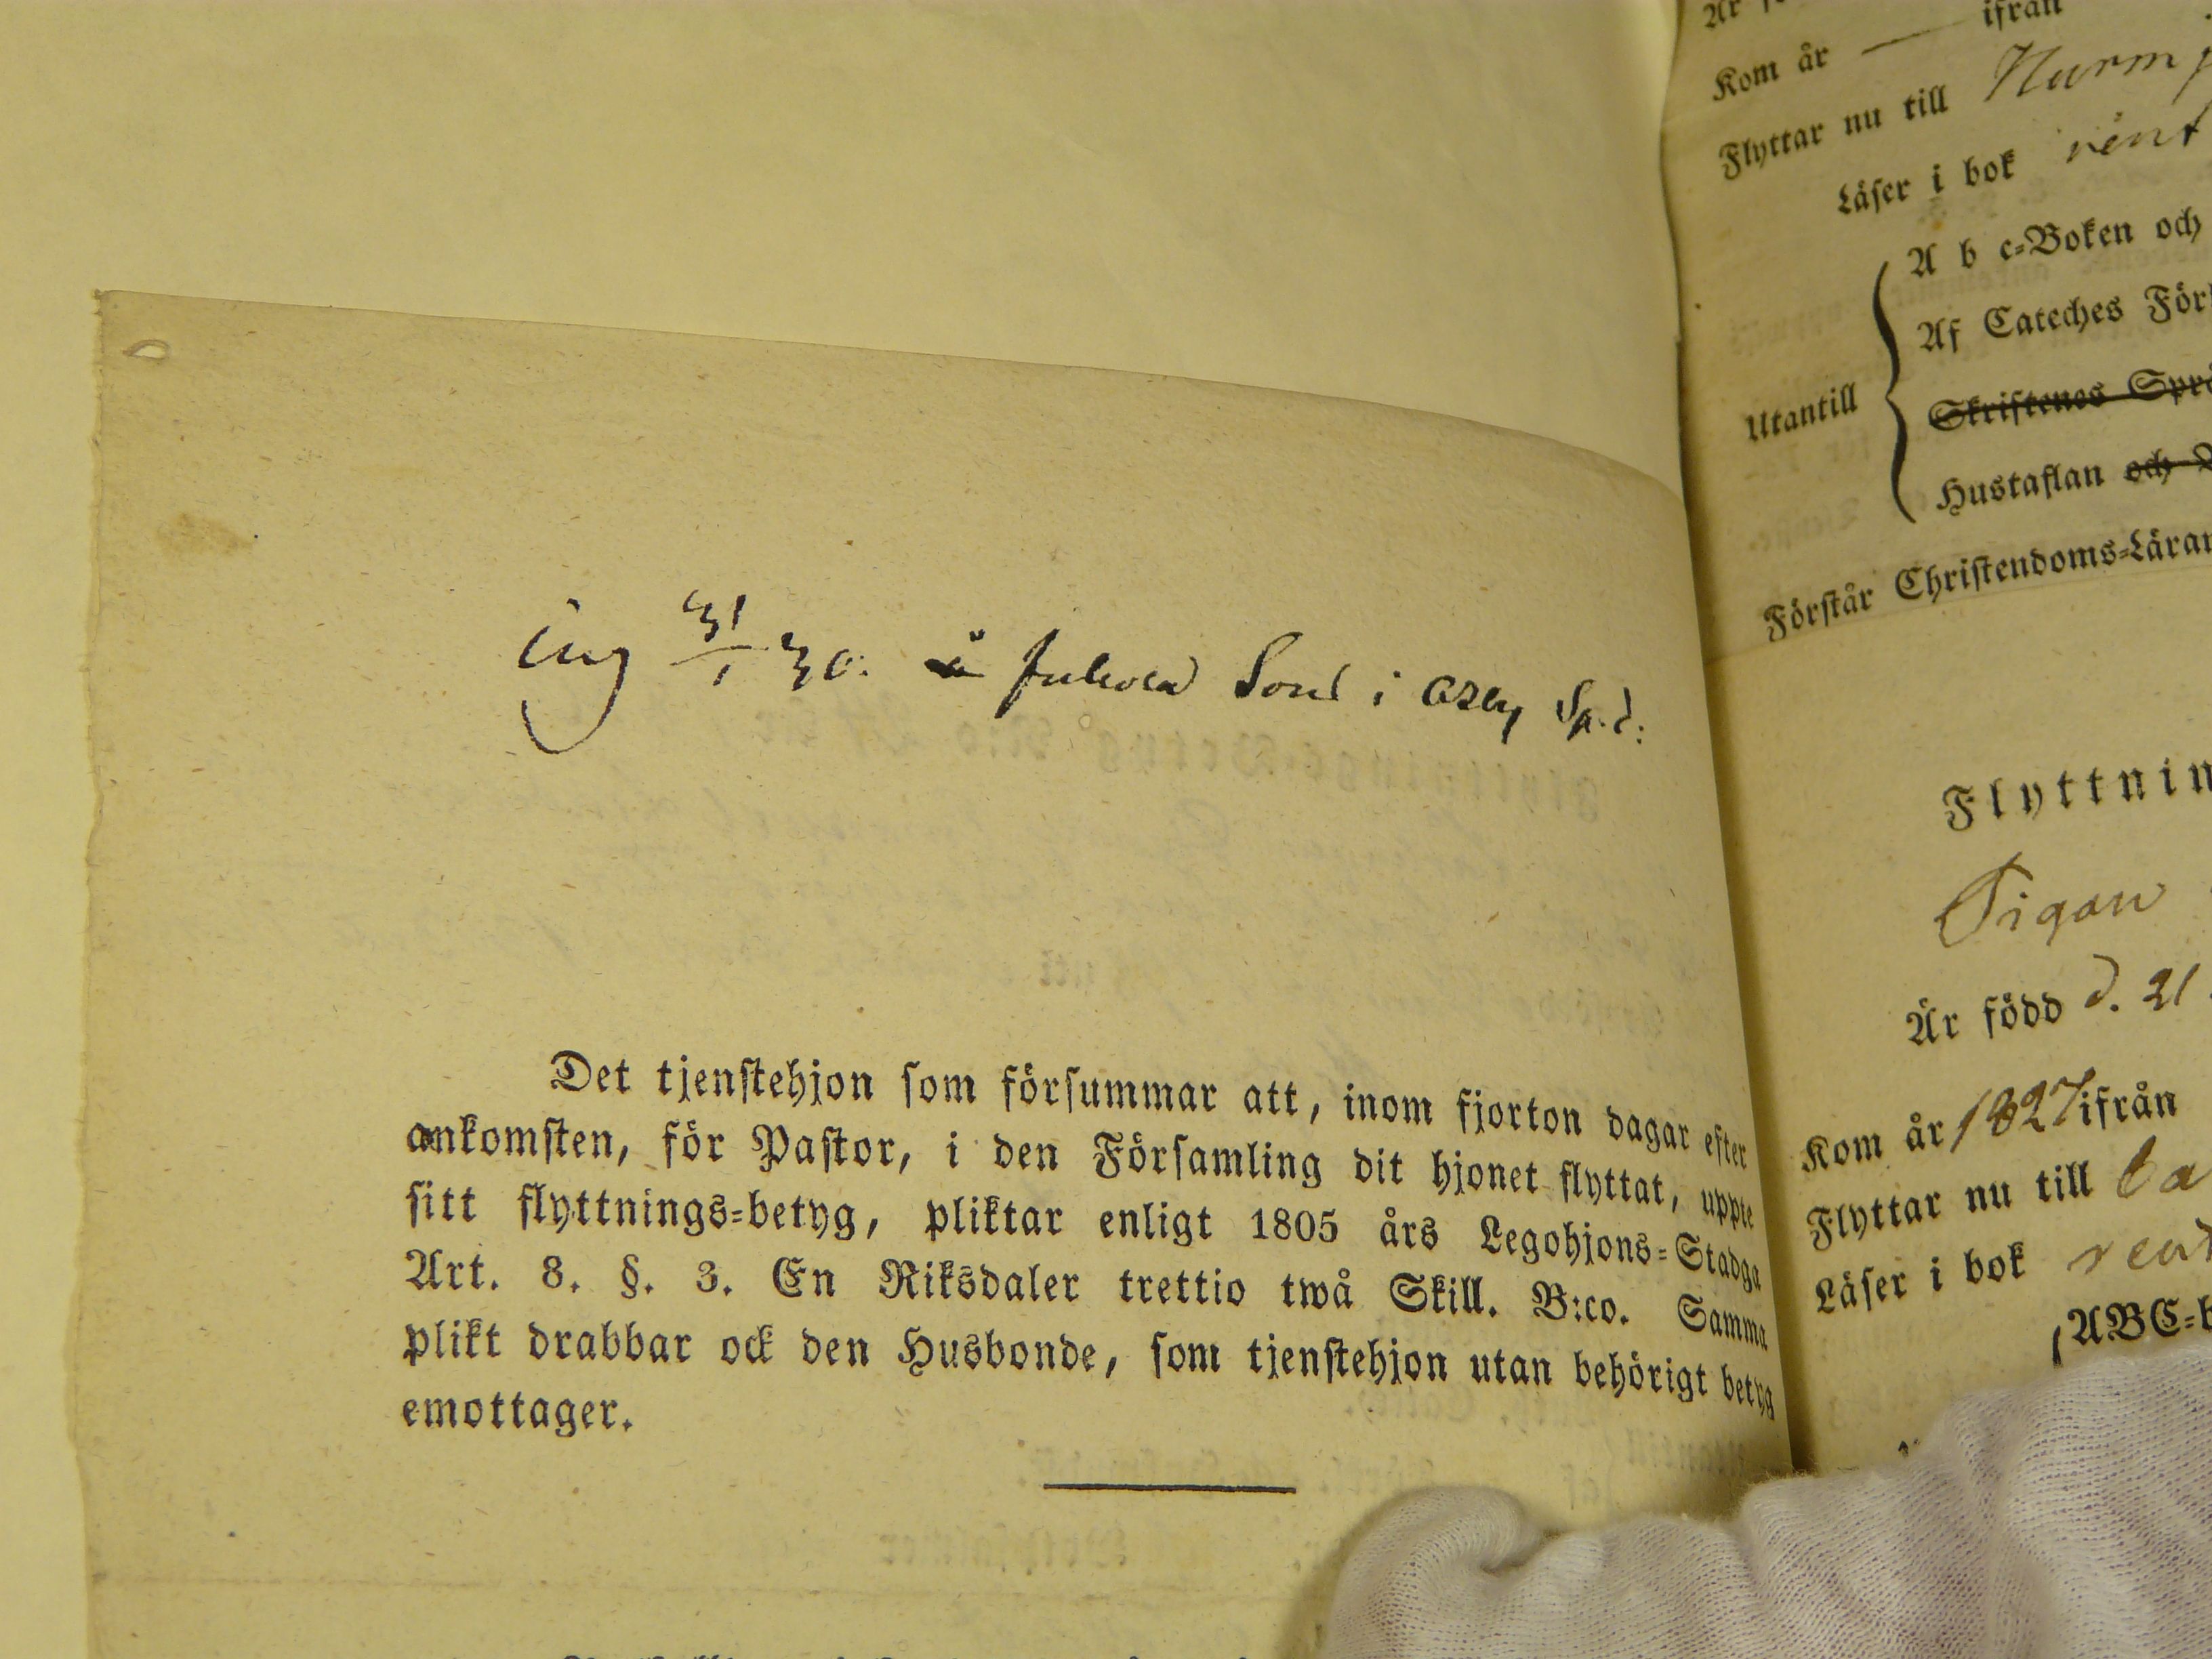 ing 31/1 30. å Juhola Sond i
Det tjenstehjon som försummar att, inom fjorton dagar efter
ankomsten, för Pastor, i den Församling dit hjonet flyttat, uppte
sitt flyttnings-betyg, pliktar enligt 1805 års Legohjons-Stadga
Art. 8. §. 3. En Riksdaler trettio twå Skill. B:co. Samma
plikt drabbar ock den Husbonde, som tjenstehjon utan behörigt betyg
emottager.
Kom år — ifrån
Flyttar nu till Nurm
Läser i bok rent
Utantill
A b c-Boken och
Af Cateches För
Skriftenes Språ
Hustaflan och
Förstår Christendoms-Läran
Flyttnin
Pigan
Är född d. 21
Kom år 1827 ifrån
Flyttar nu till
Läser i bok rent
ABC-b